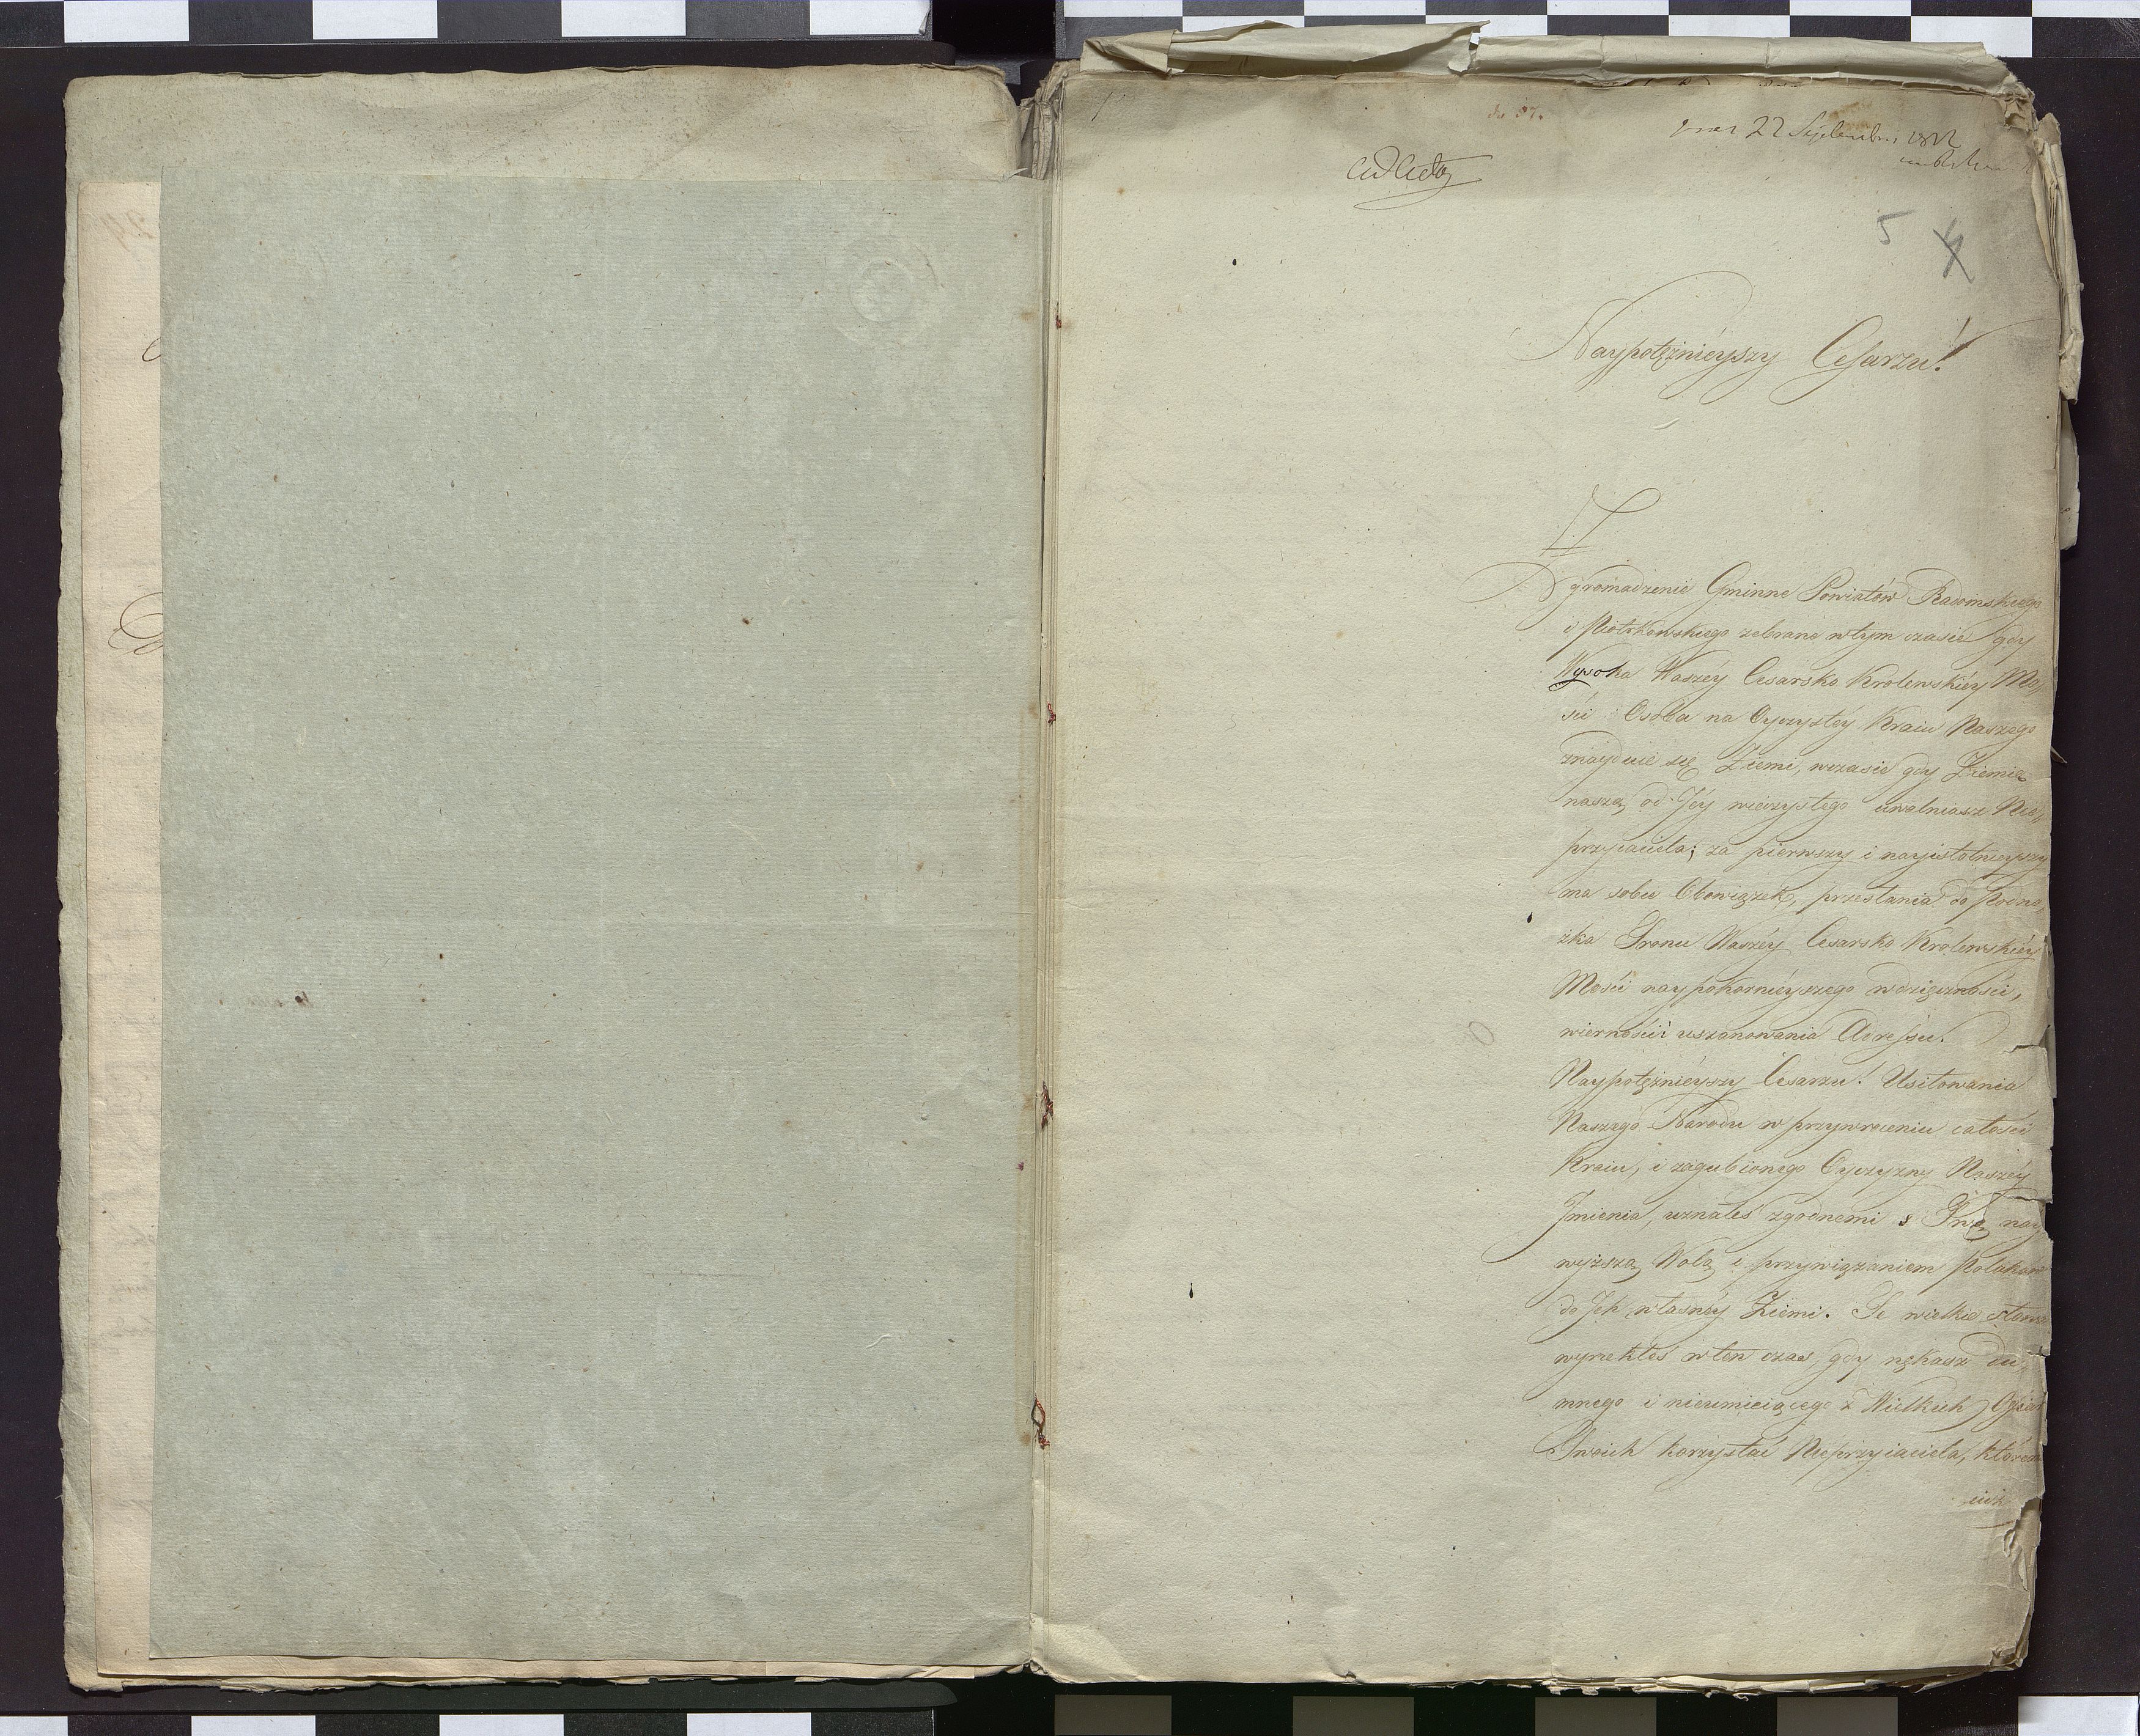 ad acta
22 Septembris 1812
5 4
Naypotężnieyszy Cesarzu!
Zgromadzenie Gminne Powiatów Radomskiego
i Piotrkowskiego zebrane w tym czasie gdy
Wysoka Waszéy Cesarsko Krolewskiéy Mo,
ści Osoba na Oyczystéy Kraiu Naszego
znayduie się Ziemi, w czasie gdy Ziemię
naszą od Jéy wieczystego uwalniasz Nie,
przyiaciela; za pierwszy i nayistotnieyszy
ma sobie Obowiązek, przesłania do Podnó,
żka Tronu Waszéy Cesarsko Krolewskiéy
Mości naypokornieyszego wdzięczności,
wierności i uszanowania Adressu.
Naypotężnieyszy Cesarzu! Usiłowania
Naszego Narodu w przywroceniu całości
Kraiu, i zagubionego Oyczyzny Naszéy
Jmienia, uznałeś zgodnemi s Twą nay
wyższą Wolą i przywiązaniem Polaków
do Jch własnéy Ziemi. Te wielkie słowa
wyrzekłeś w ten czas, gdy nękasz du,
mnego i nieumieiącego z Wielkich
Twoich korzystać Nieprzyiaciela, któren
iuż